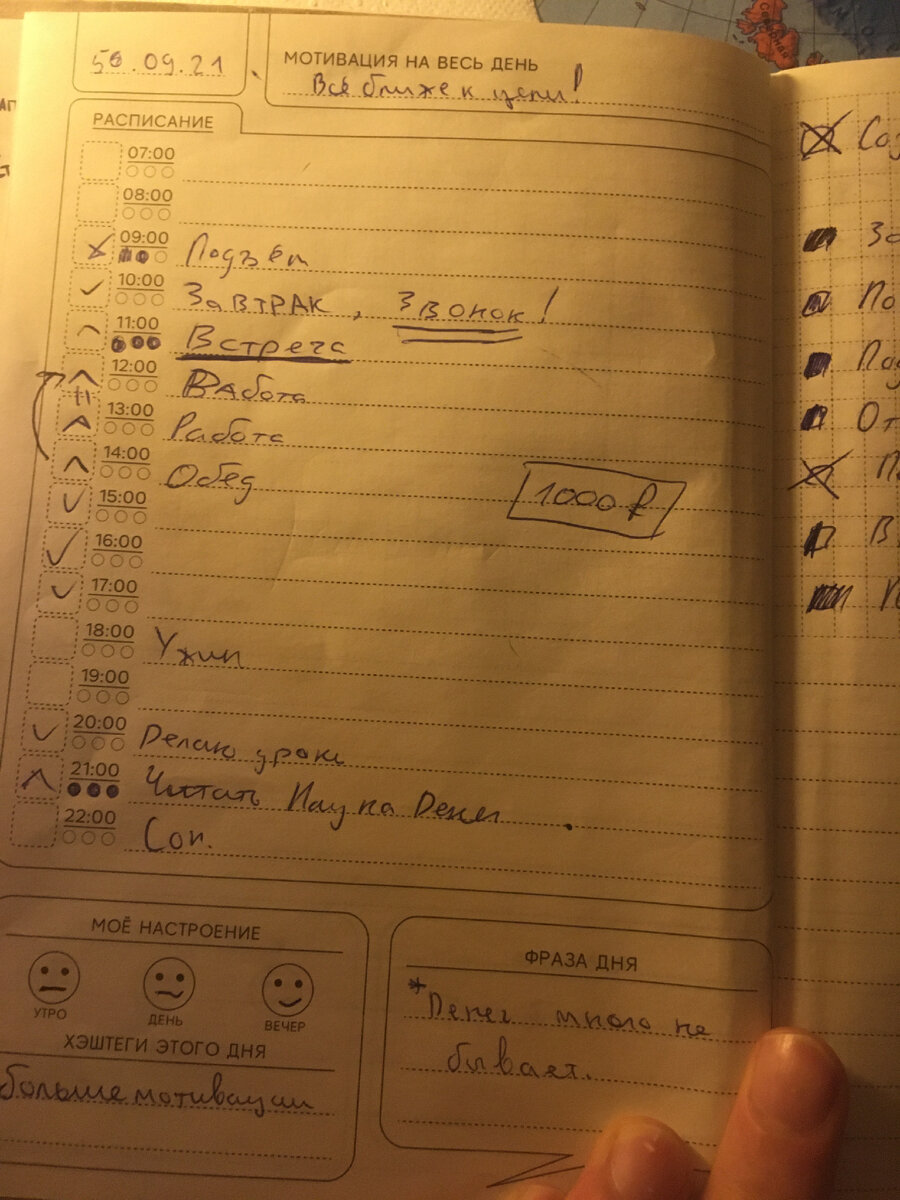 .09.21
МОТИВАЦИЯ НА ВЕСЬ ДЕНЬ
Всё ближе к цели!
РАСПИСАНИЕ
07:00
08:00
09:00 Подъём
10:00 Завтрак, Звонок!
11:00 Встреча
12:00 Работа
13:00 Работа
14:00 Обед
1000 ₽
15:00
16:00
17:00
18:00 Ужин
19:00
20:00 Делаю уроки
21:00 Читать Наука Денег.
22:00 Сон.
МОЁ НАСТРОЕНИЕ
УТРО ДЕНЬ ВЕЧЕР
ХЭШТЕГИ ЭТОГО ДНЯ
больше мотивации
ФРАЗА ДНЯ
*Денег много не
бывает.